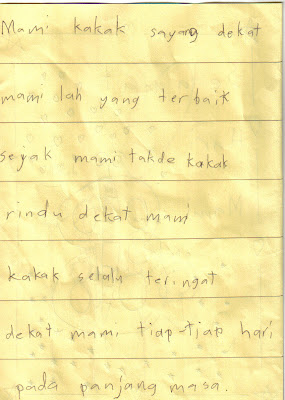 Mami kakak sayang dekat
mami lah yang terbaik
sejak mami takde kakak
rindu dekat mami
kakak selalu teringat
dekat mami tiap-tiap hari
pada panjang masa.